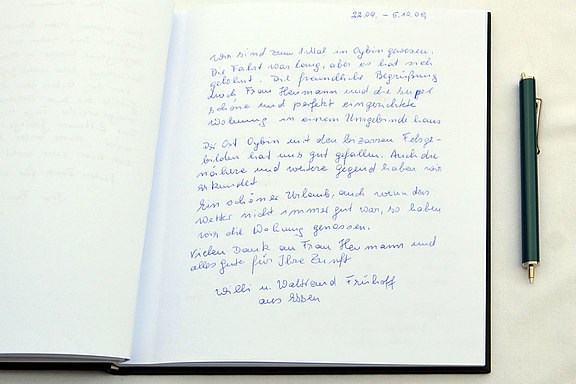 22.09. - 5.10.09
Wir sind zum 1. Mal in Oybin gewesen.
Die Fahrt war lang, aber es hat sich
gelohnt. Die freundliche Begrüßung
durch Frau Hermann und die super
schöne und perfekt eingerichtete
Wohnung in einem Umgebindehaus
Der Ort Oybin mit den bizarren Felsge-
bilden hat uns gut gefallen. Auch die
nähere und weitere Gegend haben wir
erkundet.
Ein schöner Urlaub, auch wenn das
Wetter nicht immer gut war, so haben
wir die Wohnung genossen.
Vielen Dank an Frau Hermann und
alles gute für Ihre Zunft
Willi u. Waltraud Frühoff
aus Essen